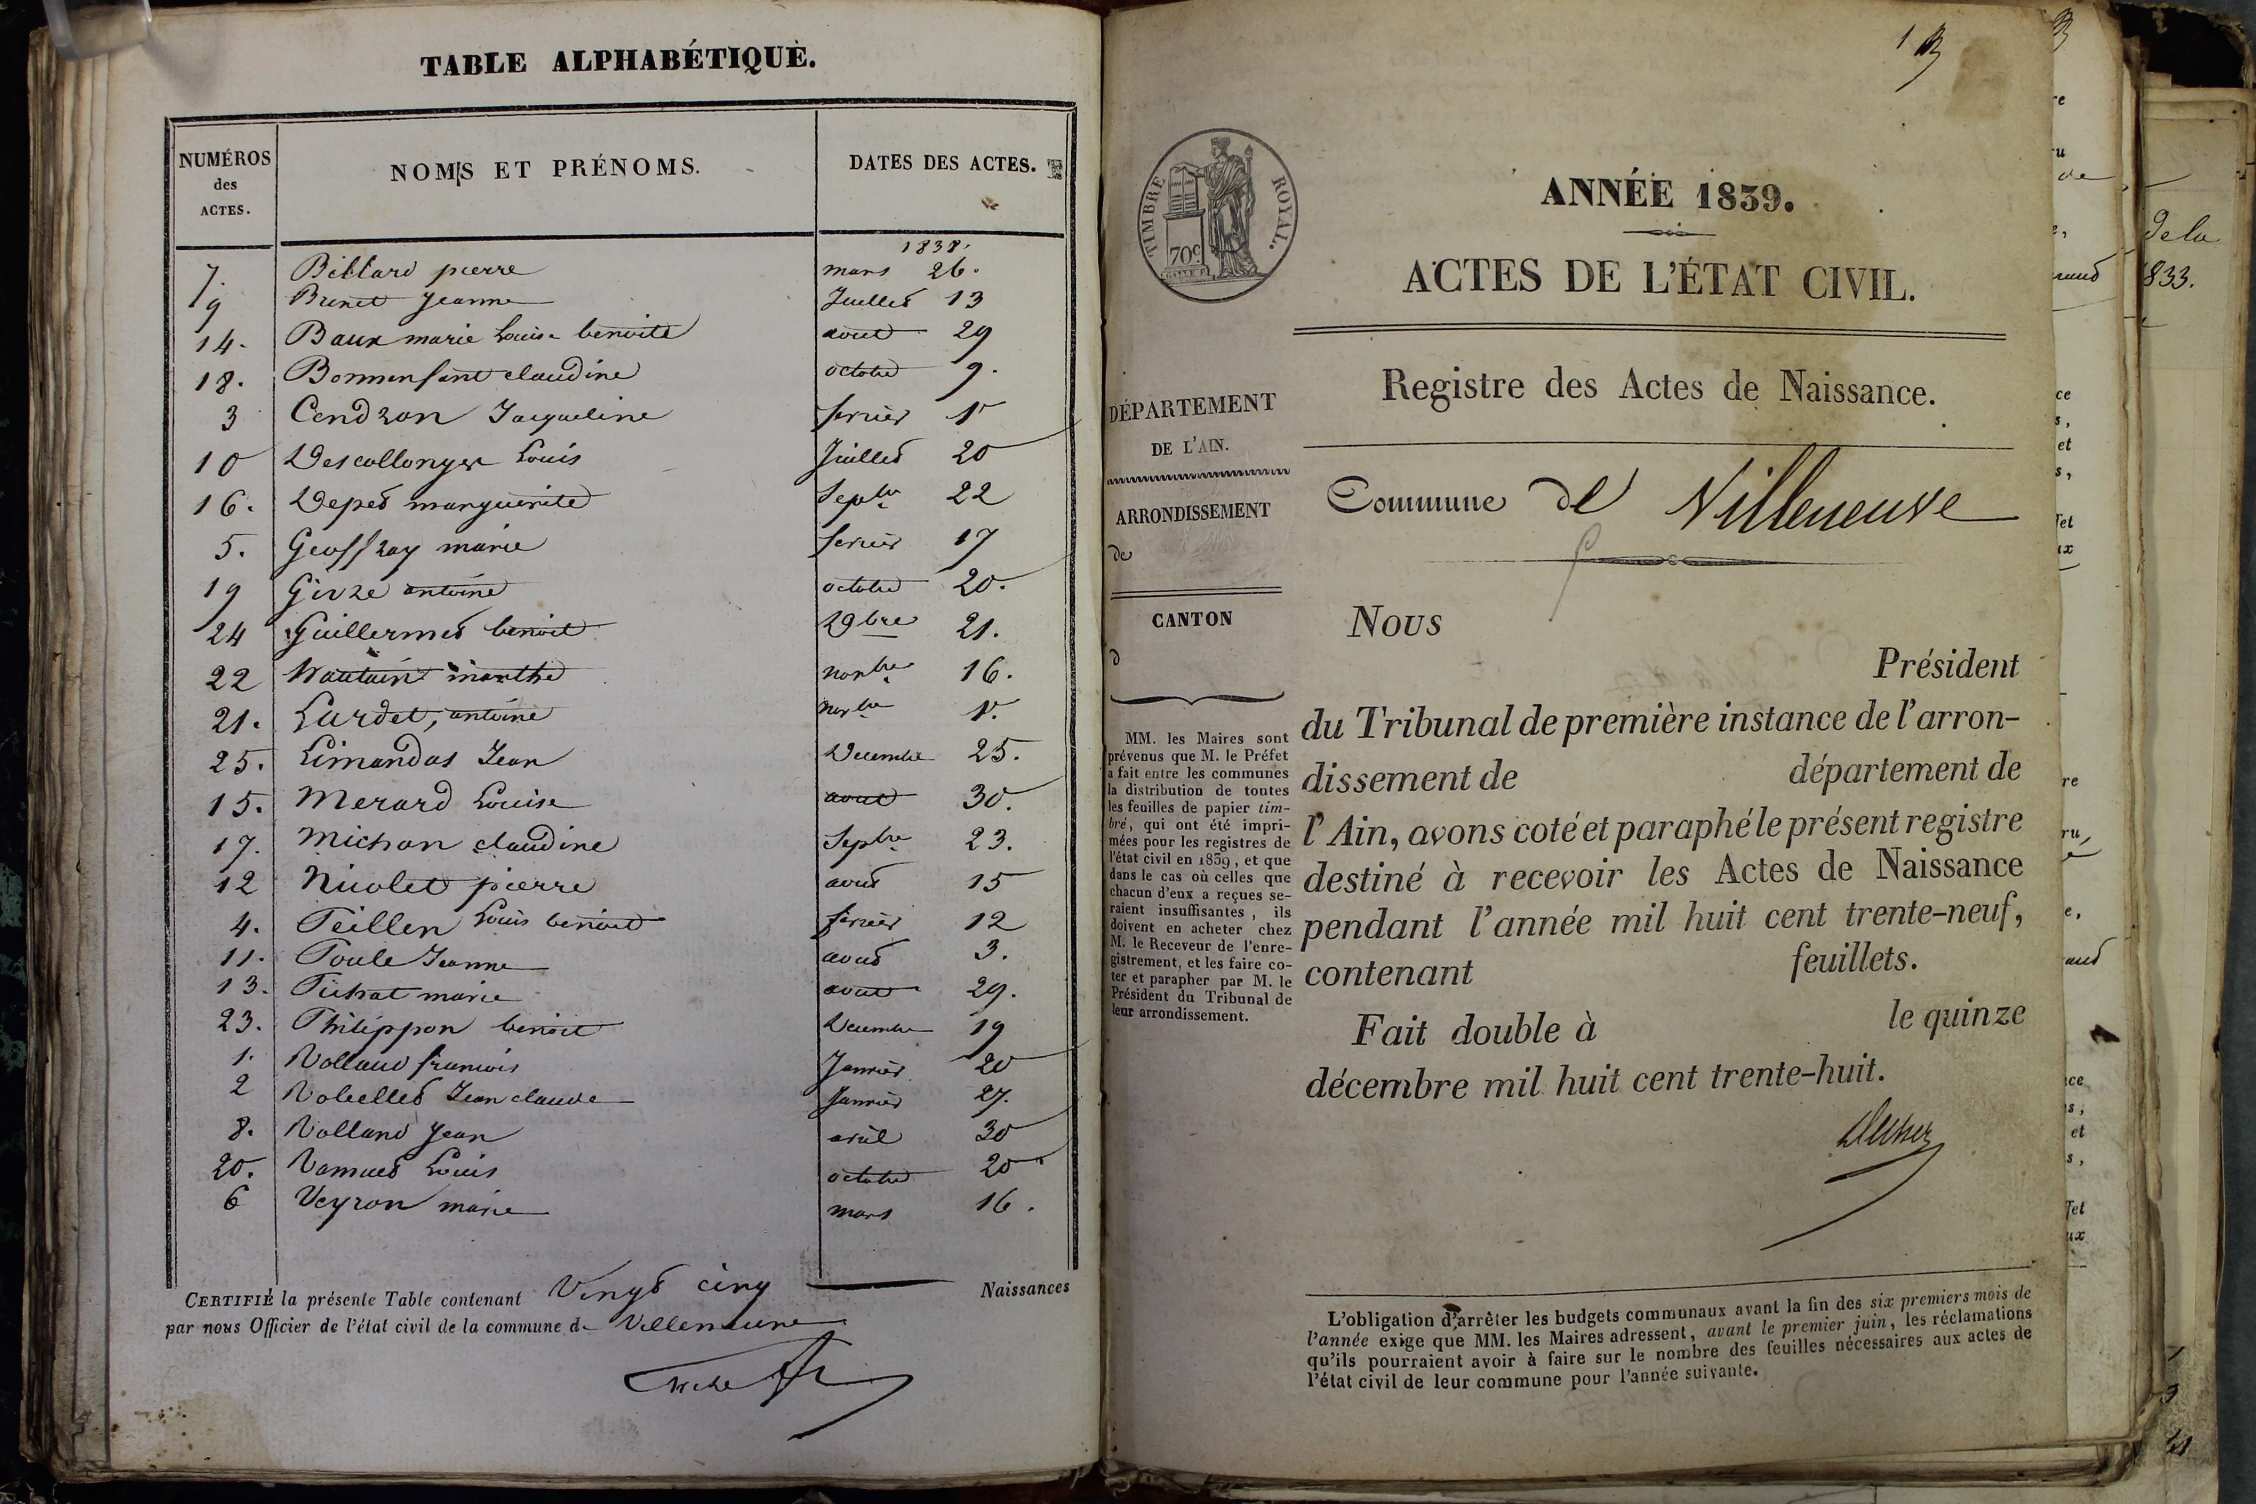 TABLE ALPHABÉTIQUE.
NUMÉROS des ACTES. NOMS ET PRÉNOMS. DATES DES ACTES.
1838.
7. Billard pierre mars 26.
9 Brunet Jeanne Juillet 13
14. Baux marie Louise benoite aout 29
18. Bonnenfant claudine octobre 9.
3 Cendron Jacqueline fevrier 1r
10 Descollonges Louis Juillet 20
16. Depet marguerite Septbre 22
5. Geoffray marie fevrier 17
19 Givre antoine octobre 20.
24 Guillermet benoit Xbre 21.
22 marthe novbre 16.
21. Lardet, antoine novbre 1r.
25. Limandas Jean Decembre 25.
15. Merard Louise aout 30.
17. Michon claudine Septbre 23.
12 Nicolet pierre aout 15
4. Peillen Louis benoit fevrier 12
11. Poule Jeanne aout 3.
13. Pichat marie aout 29.
23. Philippon benoit Decembre 19
1. Volland francois Janvier 20
2 Jean claude Janvier 27.
8. Volland Jean avril 30
20. Louis octobre 20
6 Veyron marie mars 16.
CERTIFIÉ la présente Table contenant Vingt cinq Naissances
par nous Officier de l'état civil de la commune de Villeneuve
TIMBRE ROYAL.
70c
ANNÉE 1839.
ACTES DE L'ÉTAT CIVIL.
Registre des Actes de Naissance.
Commune de Villeneuve
DÉPARTEMENT
DE L'AIN.
ARRONDISSEMENT
de
CANTON
d
MM. les Maires sont
prévenus que M. le Préfet
a fait entre les communes
la distribution de toutes
les feuilles de papier tim-
bré, qui ont été impri-
mées pour les registres de
l'état civil en 1839, et que
dans le cas où celles que
chacun d'eux a reçues se-
raient insuffisantes, ils
doivent en acheter chez
M. le Receveur de l'enre-
gistrement, et les faire co-
ter et parapher par M. le
Président du Tribunal de
leur arrondissement.
Nous
Président
du Tribunal de première instance de l'arron-
dissement de département de
l'Ain, avons coté et paraphé le présent registre
destiné à recevoir les Actes de Naissance
pendant l'année mil huit cent trente-neuf,
contenant feuillets.
Fait double à le quinze
décembre mil huit cent trente-huit.
L'obligation d'arrêter les budgets communaux avant la fin des six premiers mois de
l'année exige que MM. les Maires adressent, avant le premier juin, les réclamations
qu'ils pourraient avoir à faire sur le nombre des feuilles nécessaires aux actes de
l'état civil de leur commune pour l'année suivante.
de la
833.